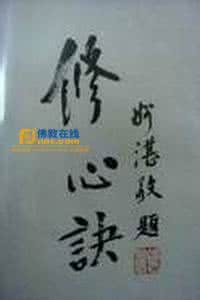 修心訣
妙湛敬題
佛教在线